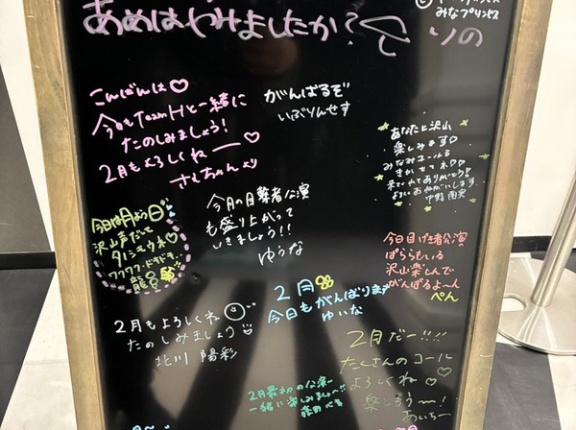 あめはやみましたか?
みなプリンセス
りの
こんばんは♡
今日もTeamHと一緒に
たのしみましょう!
2月もよろしくねー♡
さえちゃんより
がんばるぞ
いぶりんせす
あなたと沢山
楽しみます♡
みなみコールを
きかせてネ♡
来てくれてありがとう!
今月の目撃者公演
も盛り上がって
いきましょう!!
ゆうな
今日は月よう日
沢山声だして
タノシモウネ♡
ワクワク・ドキドキ
今日目げき者公演
ぱららもいる
沢山楽しんで
がんばるよ〜ん
ぺん
2月
今日もがんばります
ゆいな
2月もよろしくね
たのしみましょう
北川 陽彩
2月だー!!!
たくさんのコール
よろしくね♡
楽しもう〜!
あいちー
2月最初の公演
一緒に楽しみましょ〜!!